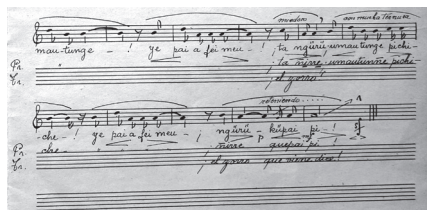 con mucha ternura
mau-tunge - ! ye pai a fei meu - ! ta ngürü umautunge pichi-
Pr. " ta ñirre umautunne pichi-
Tr. ¡ el gorro!
che - ! ye pai a fei meu - ¡ ngürü - küpai pi - !
Pr. che - ¡ ñirre quepai pi !
Tr. ¡ el gorro que viene dice !